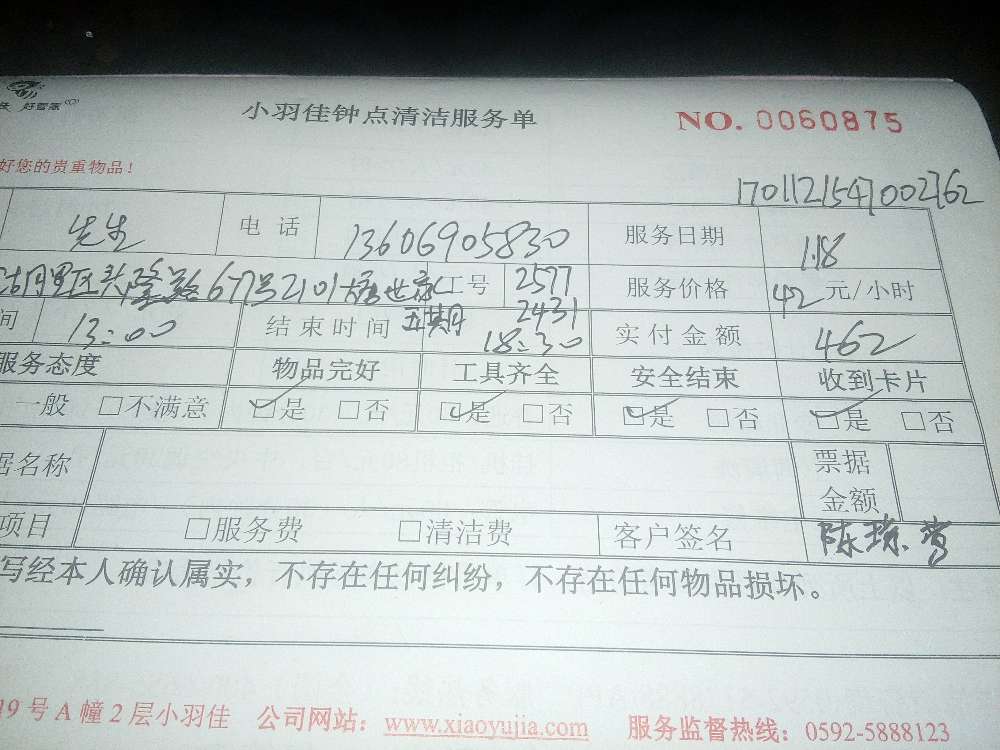 好管家
小羽佳钟点清洁服务单 NO. 0060875
好您的贵重物品!
17011215471002762
先生 电话 13606905830 服务日期 1.18
湖里区 677号2101 世家 工号 2577 服务价格 42 元/小时
间 13:00 结束时间 18:30 2431 实付金额 462
服务态度 物品完好 工具齐全 安全结束 收到卡片
一般 □不满意 ☑是 □否 ☑是 □否 ☑是 □否 ☑是 □否
据名称 票据金额
项目 □服务费 □清洁费 客户签名 陈
写经本人确认属实，不存在任何纠纷，不存在任何物品损坏。
19号A幢2层小羽佳 公司网站：www.xiaoyujia.com 服务监督热线：0592-5888123